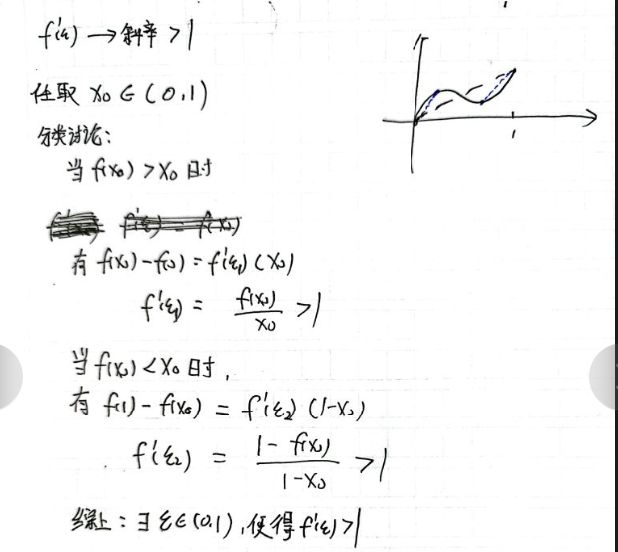 f'(ξ) → 斜率 > 1
任取 x₀ ∈ (0,1)
分类讨论:
当 f(x₀) > x₀ 时
有 f(x₀) - f(0) = f'(ξ₁) (x₀)
f'(ξ₁) = f(x₀)/x₀ > 1
当 f(x₀) < x₀ 时,
有 f(1) - f(x₀) = f'(ξ₂) (1-x₀)
f'(ξ₂) = (1 - f(x₀))/(1-x₀) > 1
综上: ∃ ξ∈(0,1), 使得 f'(ξ) > 1
1